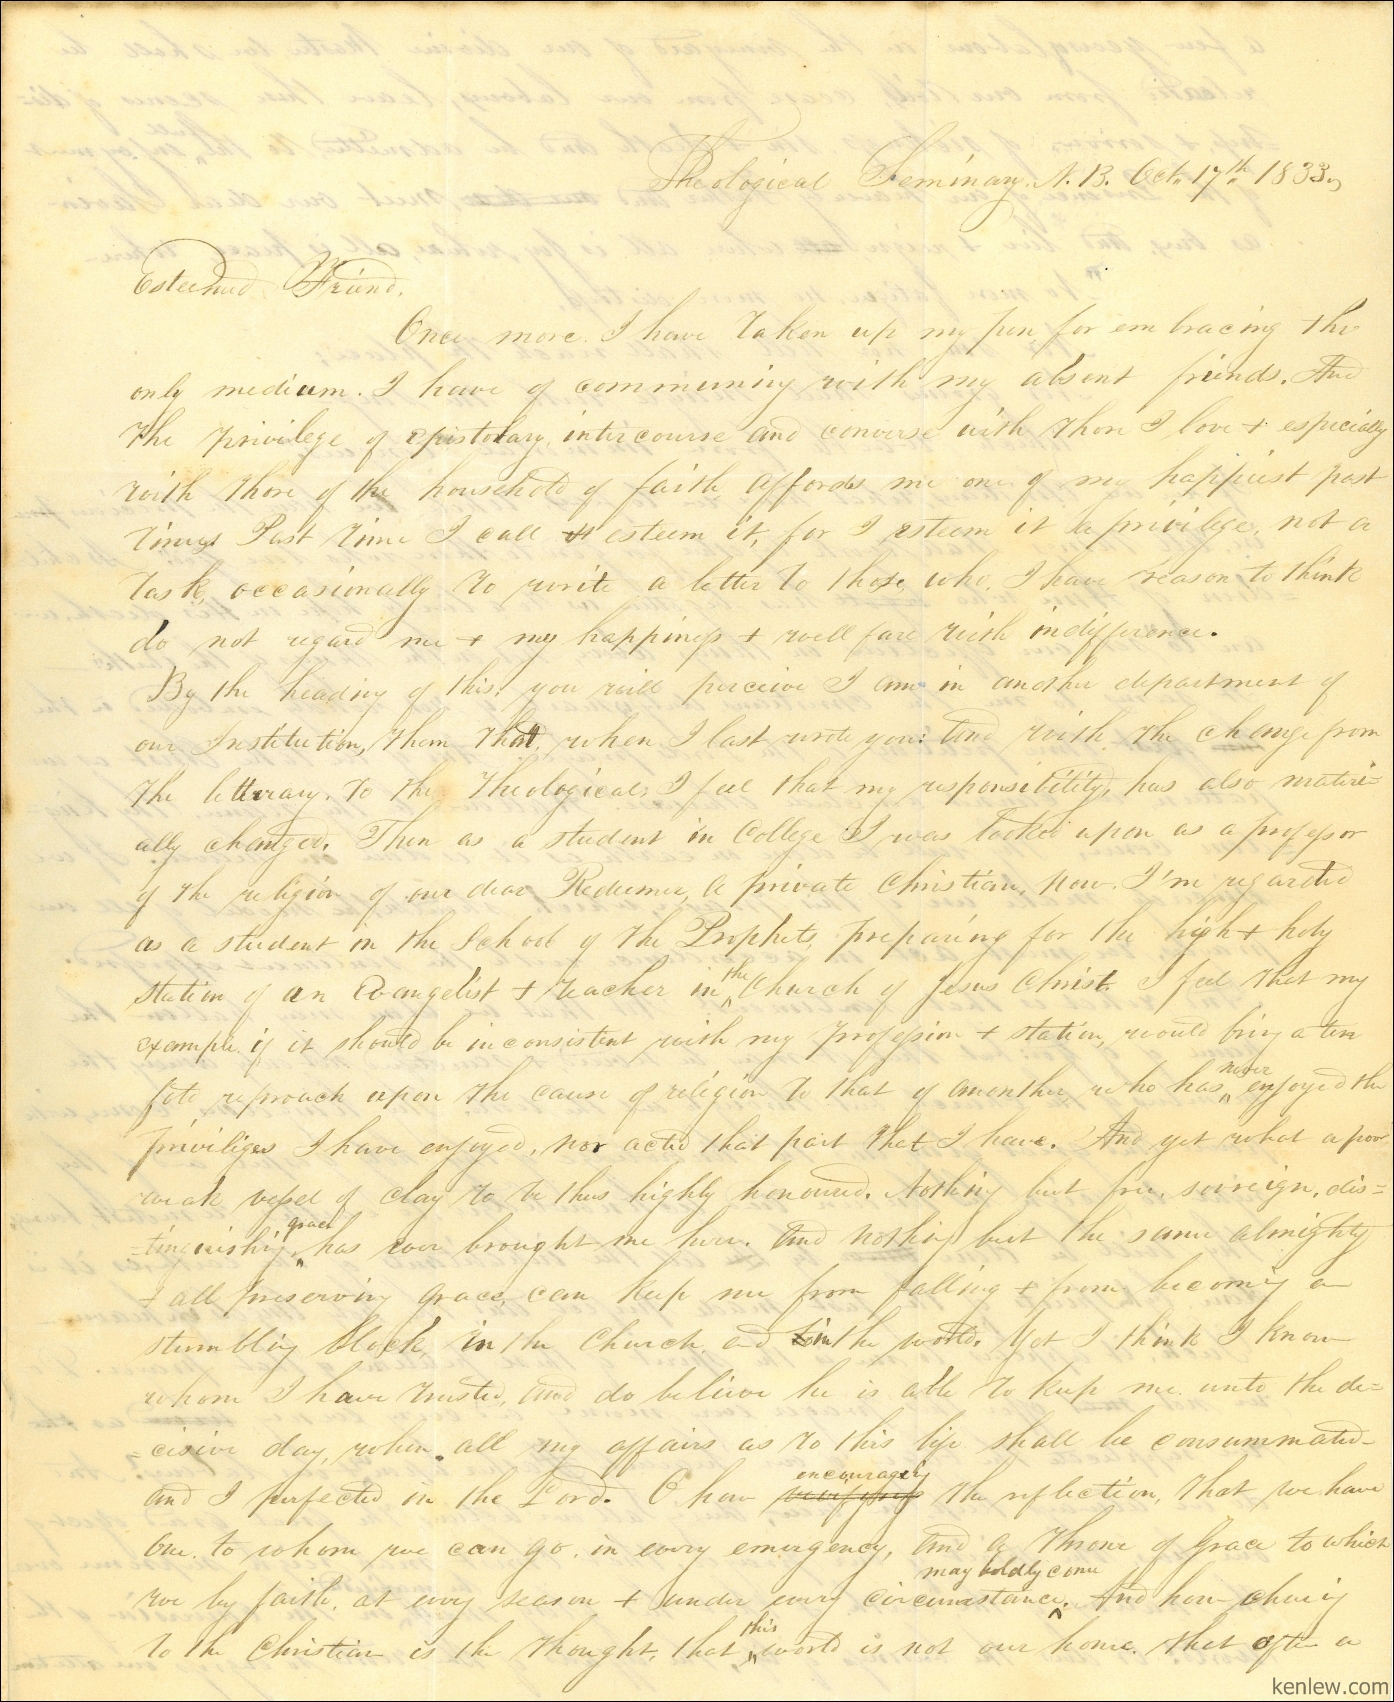 Theological Seminary. N. B. Oct. 17th 1833,
Esteemed Friend.
Once more. I have taken up my pen, for embracing the
only medium. I have of communing with my absent friends. And
the privilege of epistolary, intercourse and converse with those I love + especially
with those of the household of faith, affords me one of my happiest past
times Past time I call it esteem it, for I esteem it a privilege, not a
task, occasionally to write a letter to those, who, I have reason to think
do not regard me + my happiness + well fare with indifference.
By the heading of this, you will perceive I am in another department of
our Institution, than that, when I last wrote you: And with, the change from
the litterary, to the Theological, I feel that my responsibility, has also materi=
ally changed. Then as a student in College I was looked upon as a professor
of the religion of our dear Redeemer, a private Christian, now. I'm regarded
as a student in the School of the Prophets, preparing for the high + holy
station of an Evangelist + teacher in the Church of Jesus Christ. I feel that my
example, if it should be inconsistent with my profession + station, would bring a ten
fold reproach upon the cause of religion to that of another, who has never enjoyed the
priviliges I have enjoyed, nor acted that part that I have. And yet what a poor
weak vessel of clay to be thus highly honoured. Nothing but free, sovreign, dis=
=tinguishing grace has ever brought me here. And nothing but the same almighty
+ all preserving grace, can keep me from falling + from becoming a
stumbling block, in the Church, and in the world. Yet I think I know
whom I have trusted, and do believe he is able to keep me unto the de=
=cisive day, when. all my affairs as to this life shall be consummated
and I perfected in the Lord. O how encouraging the reflection, that we have
one, to whom we can go, in every emergency, and a throne of Grace to which
we by faith, at every season + under every circumstance, may boldly come. And how cheering
to the Christian is the thought, that this world is not our home. that after a
kenlew.com